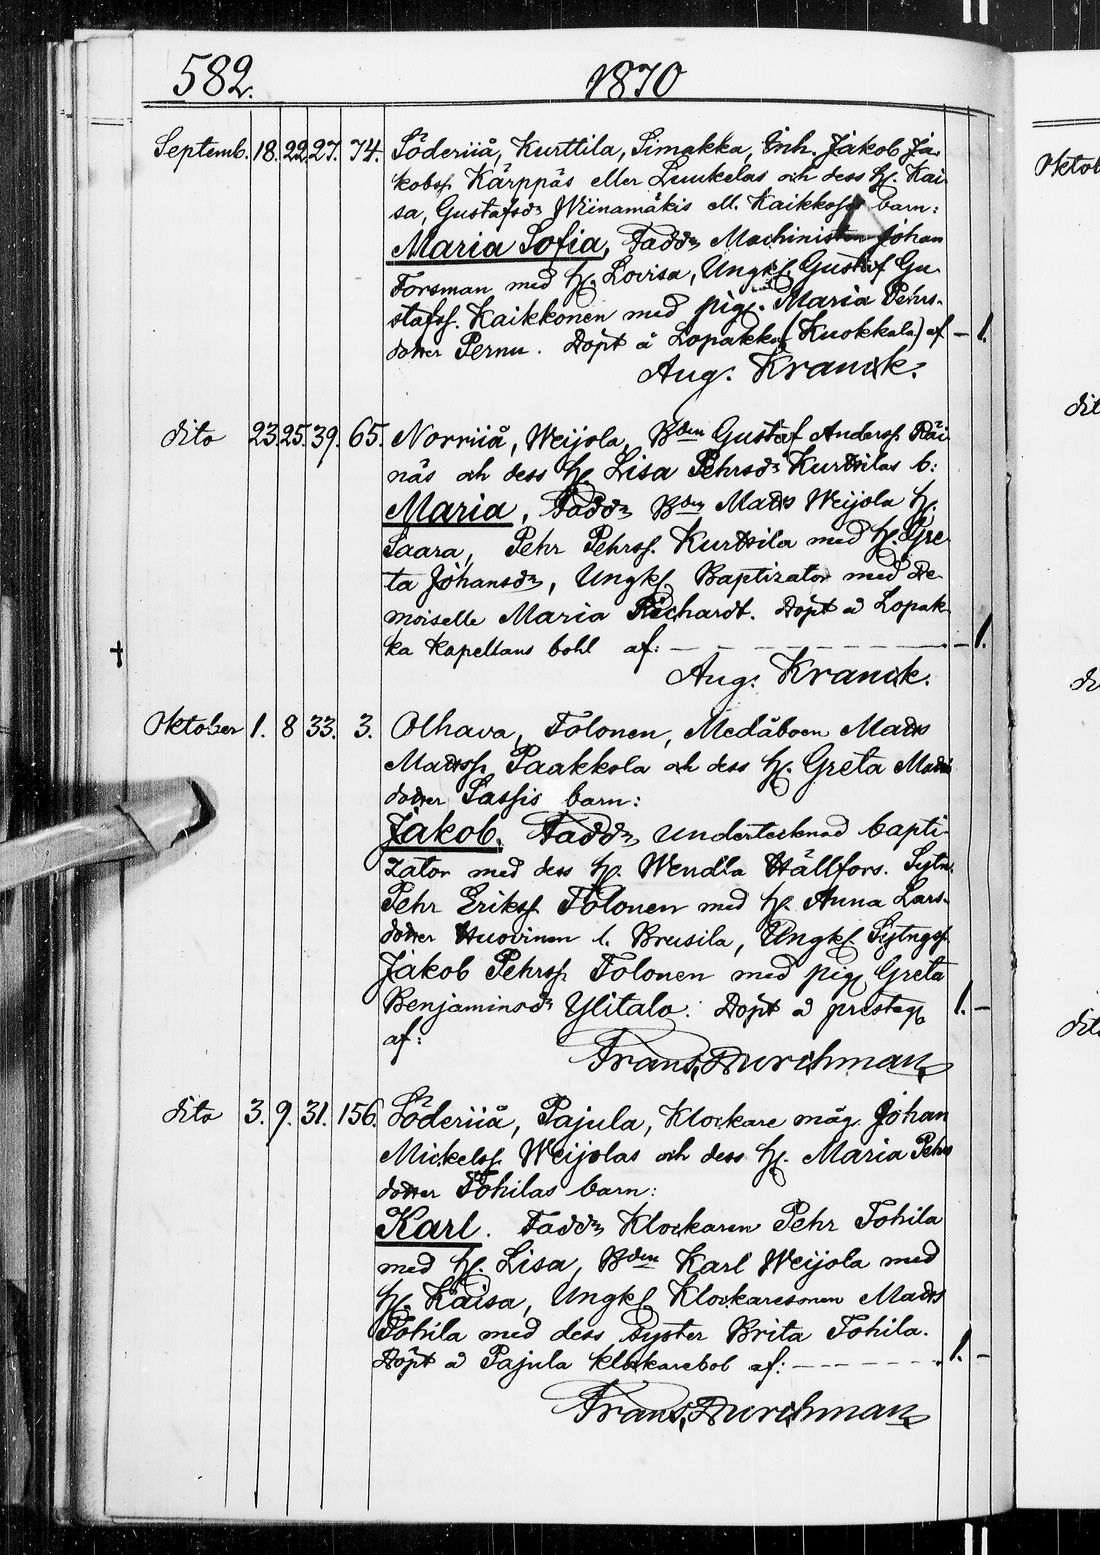 582. 1870
Septemb. 18. 22. 27. 74. Söderiiå, Kurttila, Simakka, Inh. Jakob Ja-
kobss. Kärppäs eller Luukelas och dess H. Kai-
sa, Gustafsdr Wiinamäkis ell. Kaikkoses barn:
Maria Sofia, Faddr Machinisten Johan
Forsman med H. Lovisa, Ungk. Gustaf Gu-
stafss. Kaikkonen med pig. Maria Pehrs-
dotter Pernu. Döpt å Lopakka (Kuokkala) af — 1.
Aug. Kranck.
dito 23. 25. 39. 65. Norriiå, Weijola, Bden Gustaf Anderss. Räi-
näs och dess H. Lisa Pehrsdr Kurttilas b:
Maria, Faddr Bden Matts Weijola H.
Saara, Pehr Pehrss. Kurttila med H. Gre-
ta Johansdr, Ungk. Baptizator med De-
moiselle Maria Richardt. Döpt å Lopak-
ka Kapellans bohl af: — 1.
Aug. Kranck.
Oktober 1. 8 33. 3. Olhava, Tolonen, Medåboen Matts
Mattss. Paakkola och dess H. Greta Matts
dotter Sassis barn:
Jakob. Faddr undertecknad bapti-
zator med dess H. Wendla Hällfors. Sytn.
Pehr Erikss. Tolonen med H. Anna Lars-
dotter Huovinen l. Brusila, Ungk. Sytngss.
Jakob Pehrss. Tolonen med pig. Greta
Benjaminsdr Ylitalo. Döpt å prestg. 1. —
af:
Frans Durchman
dito 3. 9. 31. 156. Söderiiå, Pajula, Klockare måg Johan
Mickelss. Weijolas och dess H. Maria Pehrs
dotter Tohilas barn:
Karl. Faddr Klockaren Pehr Tohila
med H. Lisa, Bden Karl Weijola med
H. Kaisa, Ungk. Klockaresonen Matts
Tohila med dess syster Brita Tohila.
Döpt å Pajula klockarebol af: 1. —
Frans Durchman
Oktob
dit
di
dit